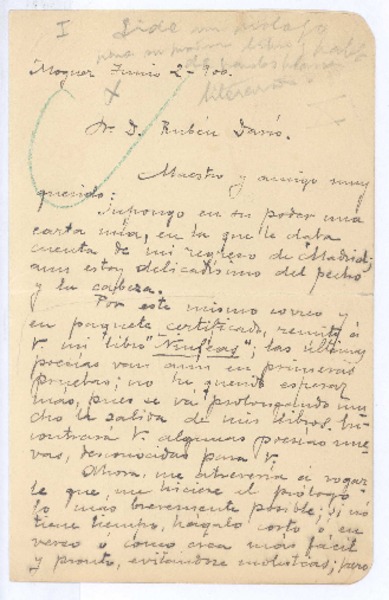 I Pide un prólogo
para su próximo libro y habla
de
literarios
Moguer Junio 2-900.
X
Sr. D. Rubén Darío.
Maestro y amigo muy
querido:
Supongo en su poder una
carta mía, en la que le daba
cuenta de mi regreso de Madrid;
aun estoy delicadísimo del pecho
y la cabeza.
Por este mismo correo y
en paquete certificado, remito á
V. mi libro "Ninfeas"; las últimas
poesías van aun en primeras
pruebas; no he querido esperar
más, pues se va prolongando mu-
cho la salida de mis libros. En-
contrará V. algunas poesías nue-
vas, desconocidas para V.
Ahora, me atrevería á rogar-
le que, me hiciere el prólogo
lo mas brevemente posible; si nó
tiene tiempo, hágalo corto ó en
verso ó como crea más fácil
y pronto, evitándose molestias; pero